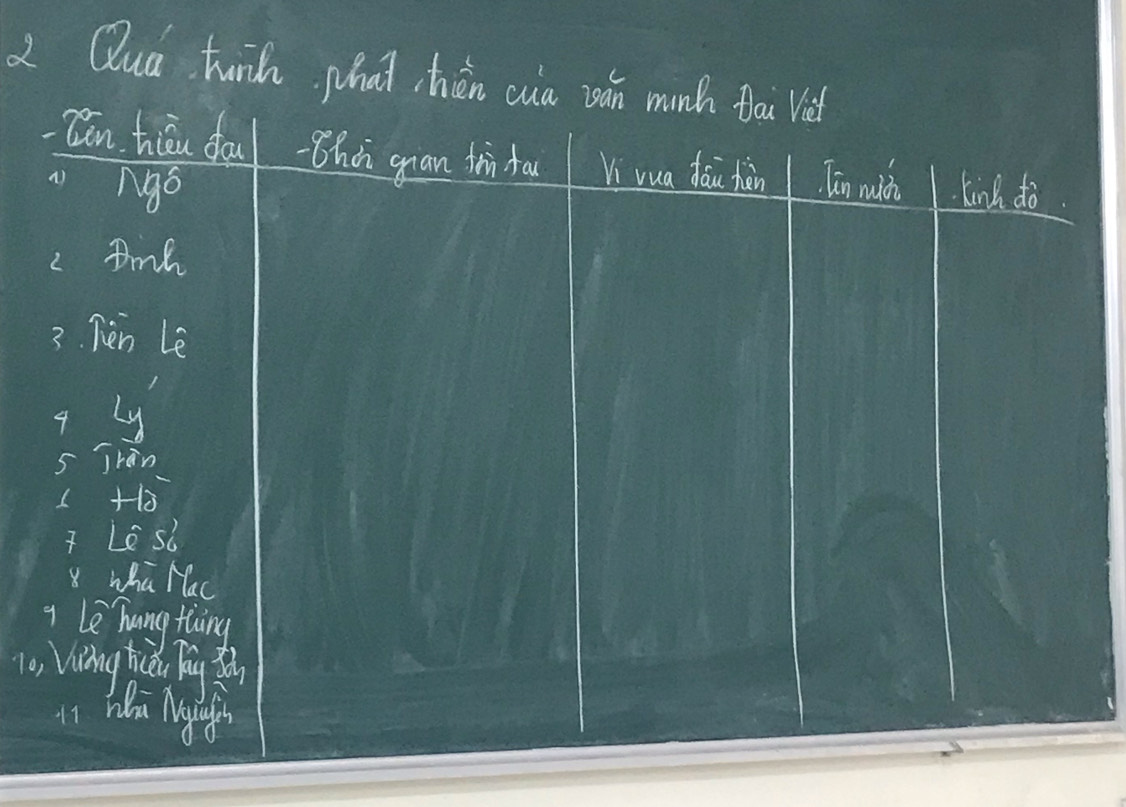 2 Quá trình phát triển của văn minh Đại Việt
- Tên triều đại - Thời gian tồn tại Vị vua đầu tiên Tên nước Kinh đô
1) Ngô
2 Đinh
3. Tiền Lê
4 Lý
5 Trần
6 Hồ
7 Lê Sơ
8 nhà Mạc
9 Lê Trung Hưng
10, Vương triều Tây Sơn
11 nhà Nguyễn